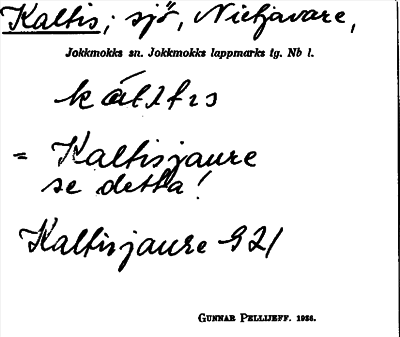 Kaltis; sjö, Nietjavare,
Jokkmokks sn. Jokkmokks lappmarks tg. Nb l.
kāltis
= Kaltisjaure
se detta!
Kaltisjaure 921
GUNNAR PELLIJEFF. 1956.